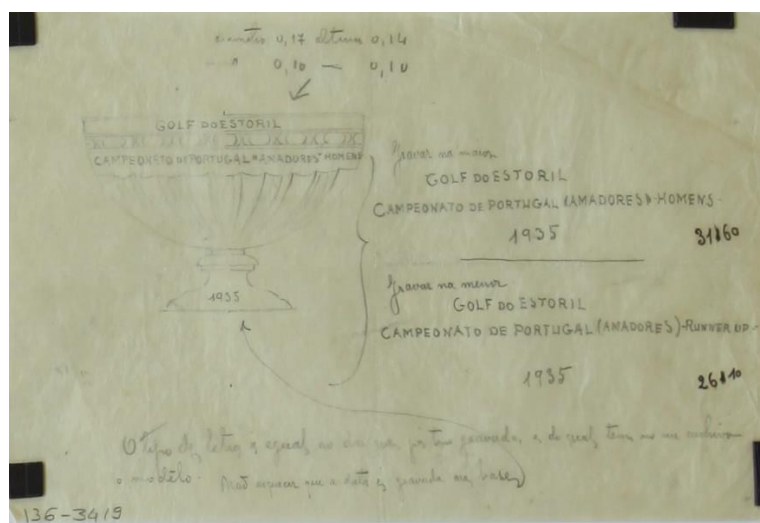 diametro 0,17 altura 0,14
" 0,10 — 0,10
GOLF DO ESTORIL
CAMPEONATO DE PORTUGAL "AMADORES" HOMENS
1935
Gravar na maior
GOLF DO ESTORIL
CAMPEONATO DE PORTUGAL (AMADORES) - HOMENS -
1935
31$60
Gravar na menor
GOLF DO ESTORIL
CAMPEONATO DE PORTUGAL (AMADORES) - RUNNER UP -
1935
26$10
O tipo de letra é egual ao da já gravada, e do qual tem no
o modêlo. Não esquecer que a data é gravada na base
136-3419